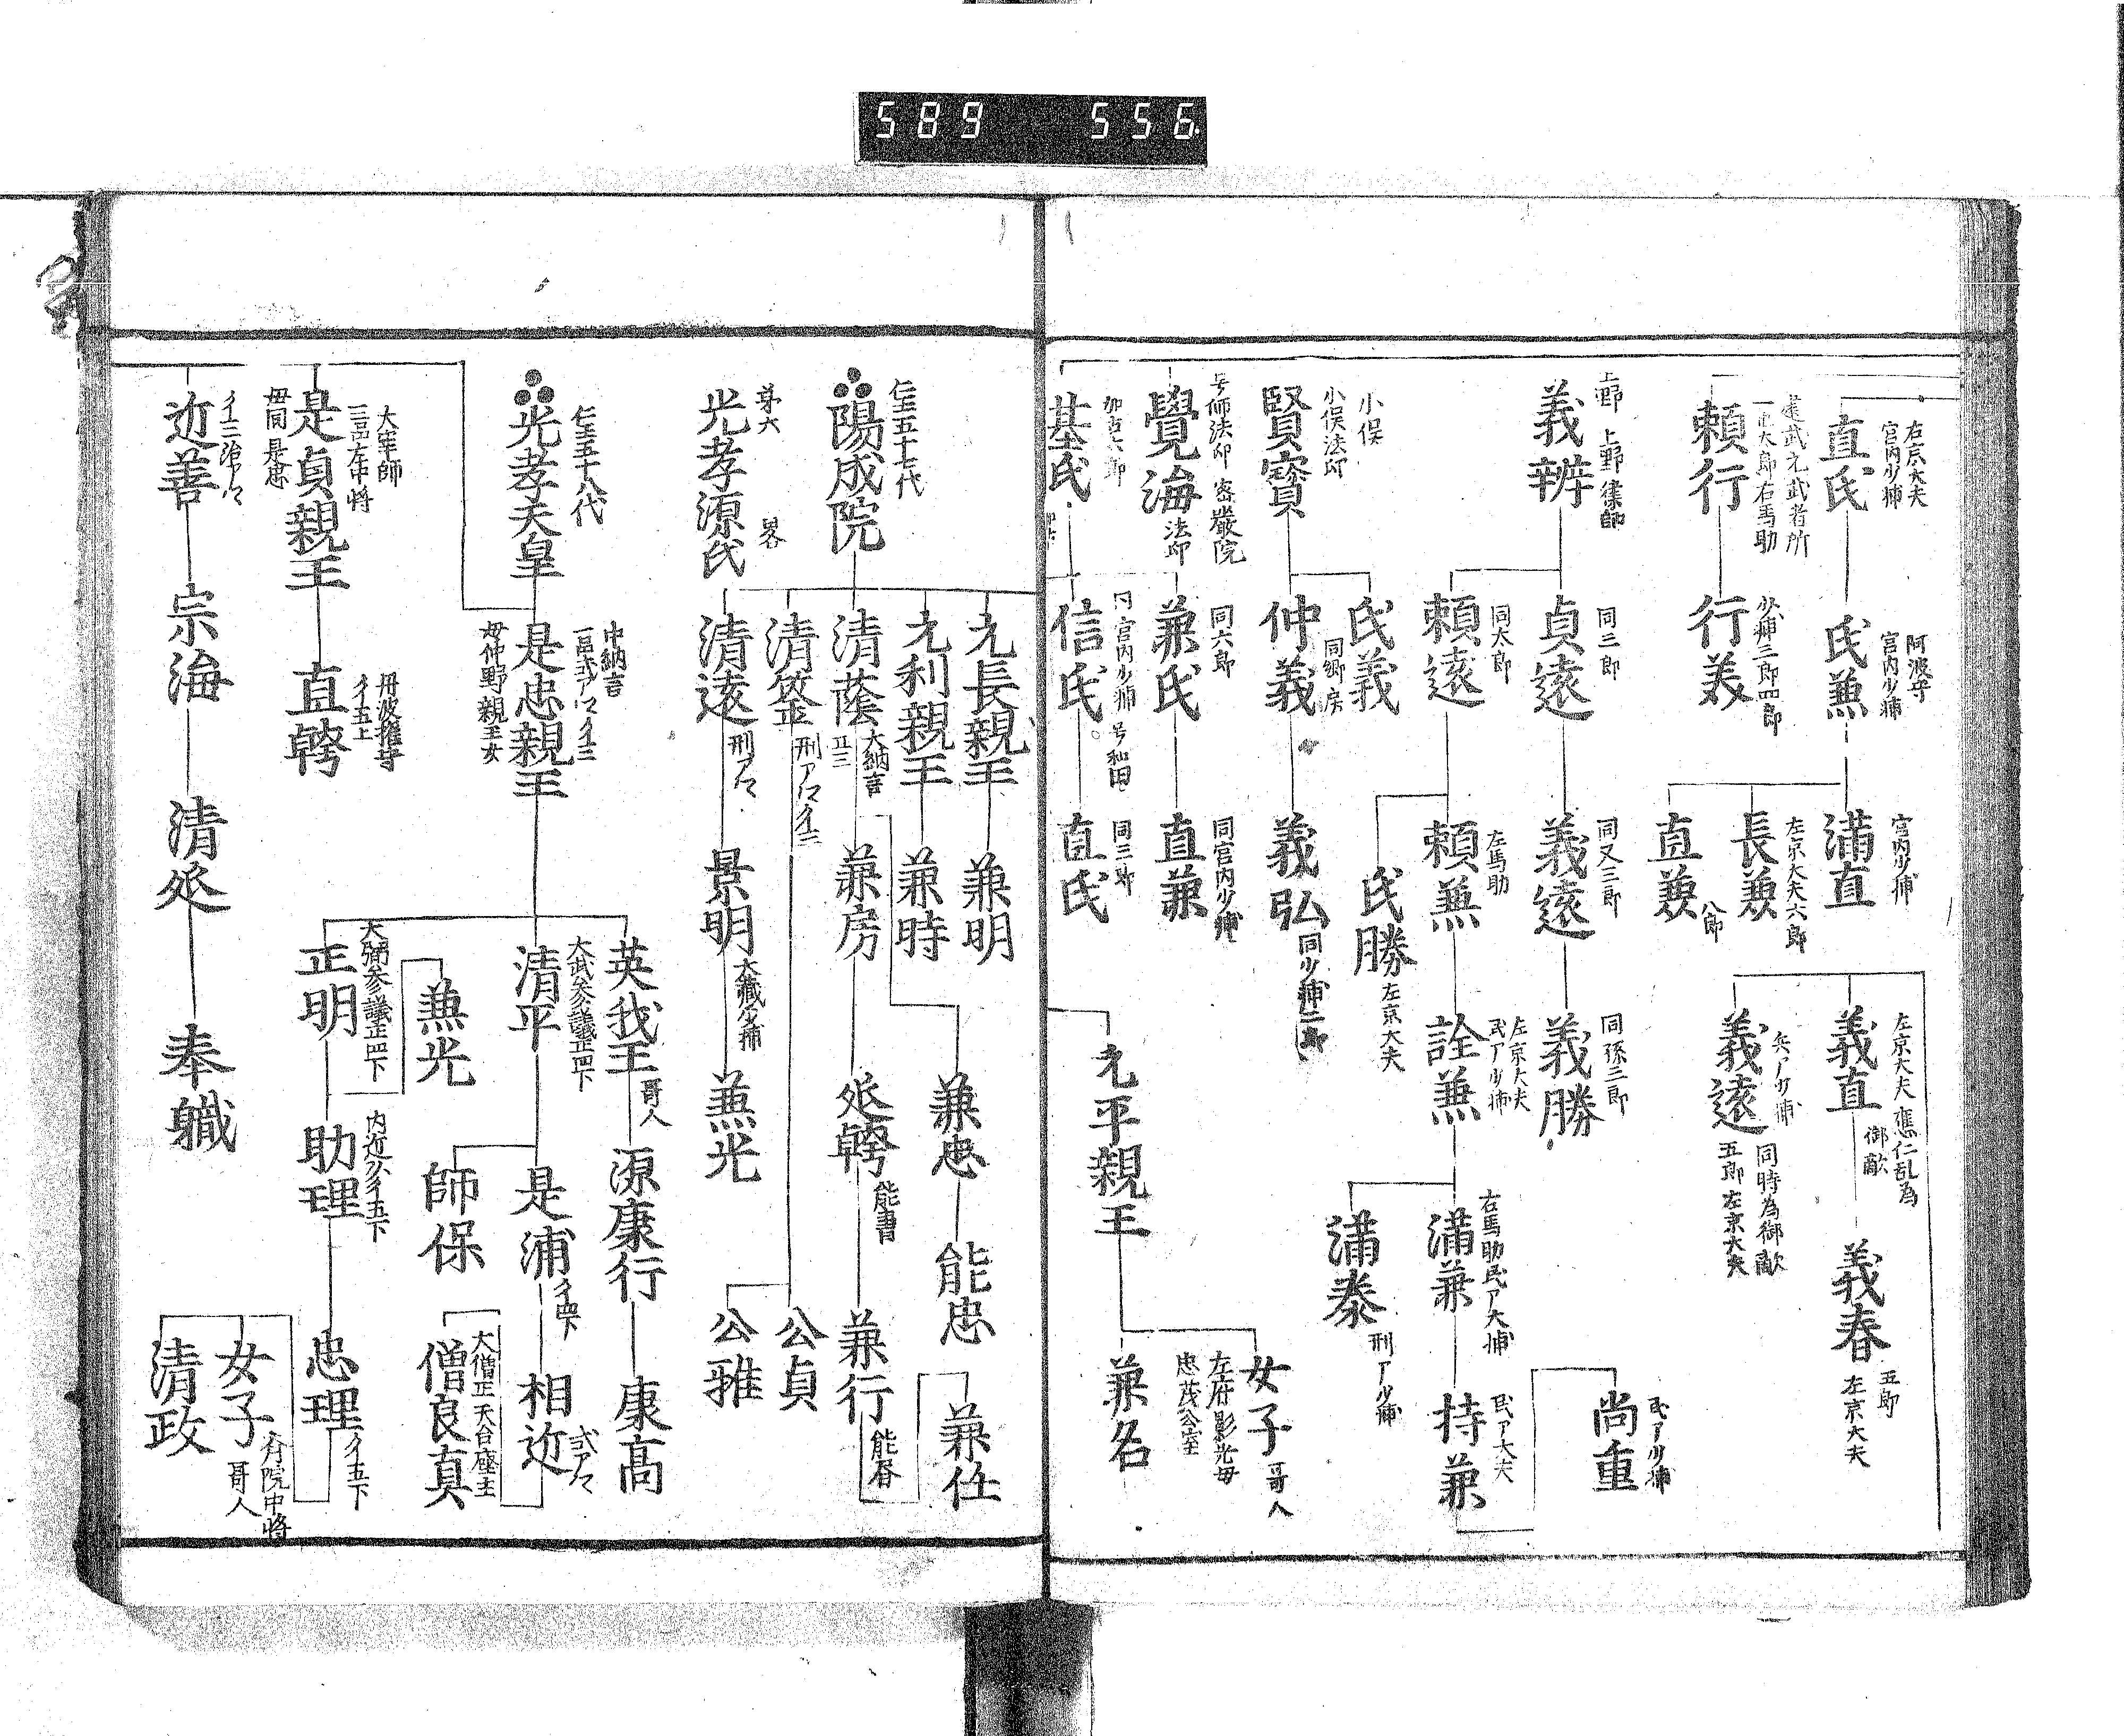 589 556
直氏
右京大夫
宮内少輔
氏兼
阿波守
宮内少輔
満直
宮内少輔
長兼
左京大夫六郎
直兼
八郎
義直
左京大夫應仁乱為
御敵
義春
五郎
左京大夫
義遠
兵ア少輔
同時為御敵
五郎左京大夫
頼行
建武元武者所
太郎右馬助
行兼
少輔三郎四郎
義辨
上野 上野律師
貞遠
同三郎
義遠
同又三郎
義勝
同孫三郎
頼遠
同太郎
頼兼
左馬助
詮兼
左京大夫
民ア少輔
満兼
右馬助民ア大輔
持兼
民ア大夫
尚重
民ア少輔
満泰
刑ア少輔
氏勝
左京大夫
賢寳
小俣
小俣法印
氏義
仲義
同郷房
義弘
同少輔二郎
覺海
号師法印 密嚴院
法印
兼氏
同六郎
直兼
同宮内少輔
基氏
加古六郎
信氏
同宮内少輔 号和田
直氏
同三郎
元平親王
女子
哥人
左府影光母
忠茂公室
兼名
陽成院
仁王五十七代
元長親王
兼明
元利親王
兼時
清蔭
大納言
正三
兼房
兼忠
能忠
㢟幹
能書
兼行
能書
兼任
清簦
刑アマイ三
公貞
公雅
清遠
刑アマ
景明
大藏少輔
兼光
光孝源氏
第六
光孝天皇
仁王五十八代
是忠親王
中納言
一品式アマイ三
母仲野親王女
英我王
哥人
源康行
康髙
清平
大貳参議正四下
是浦
イ四下
相近
式アマ
僧良真
大僧正天台座主
師保
正明
大弼参議正四下
兼光
助理
内近少イ五下
忠理
イ五下
女子
斉院中将
哥人
清政
是貞親王
大宰帥
三品左中将
母同是忠
直幹
丹波權守
イ五上
近善
イ三治アマ
宗海
清㢟
奉職